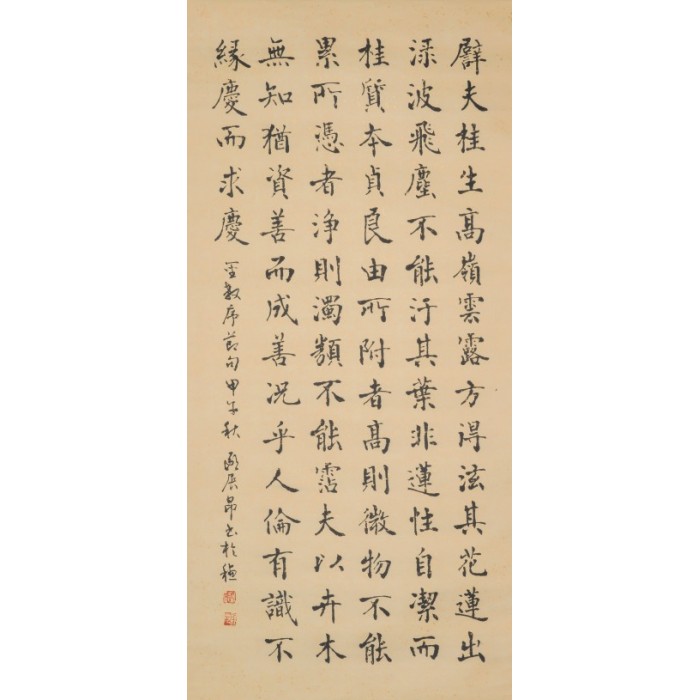 譬夫桂生髙嶺雲露方得泫其花蓮出
渌波飛塵不能汙其葉非蓮性自潔而
桂質本貞良由所附者髙則微物不能
累所憑者浄則濁類不能霑夫以卉木
無知猶資善而成善況乎人倫有識不
緣慶而求慶 聖教序節句甲午秋 展昂書於穗